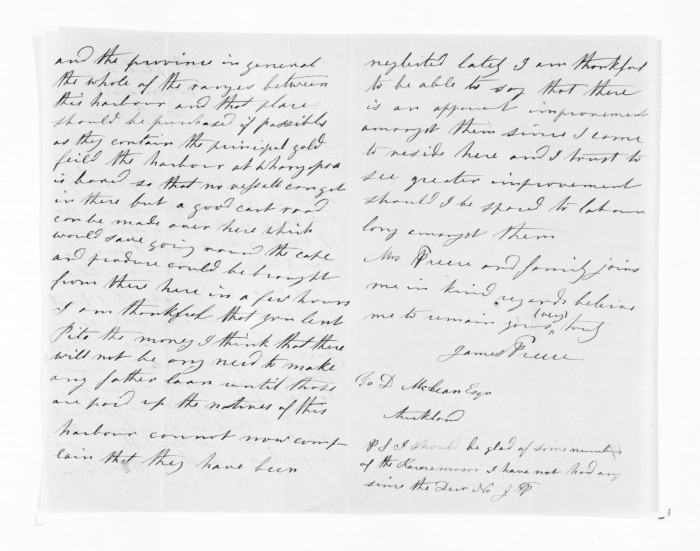 and the province in general
the whole of the ranges between
this harbour and that place
should be purchased if possible
as they contain the principal gold
feild the harbour at
is bared so that no vessell can get
in there but a good cart road
can be made over here which
would save going round the cape
and produce could be brought
from there here in a few hours
I am thankful that you lent
Pita the money I think that there
will not be any need to make
any father loan until those
are paid up the natives of this
harbour connot now comp
lain that they have been
neglected lately I am thankful
to be able to say that there
is an apperent improvement
amongst them since I came
to reside here and I trust to
see greater improvement
should I be spared to labour
long amongst them
Mrs Preece and family joins
me in kind regards believe
me to remain yours (very) truly
James Preece
To D McLean Esqr
Auckland
P S I should be glad of some numbers
of the I have not had any
since the No J P